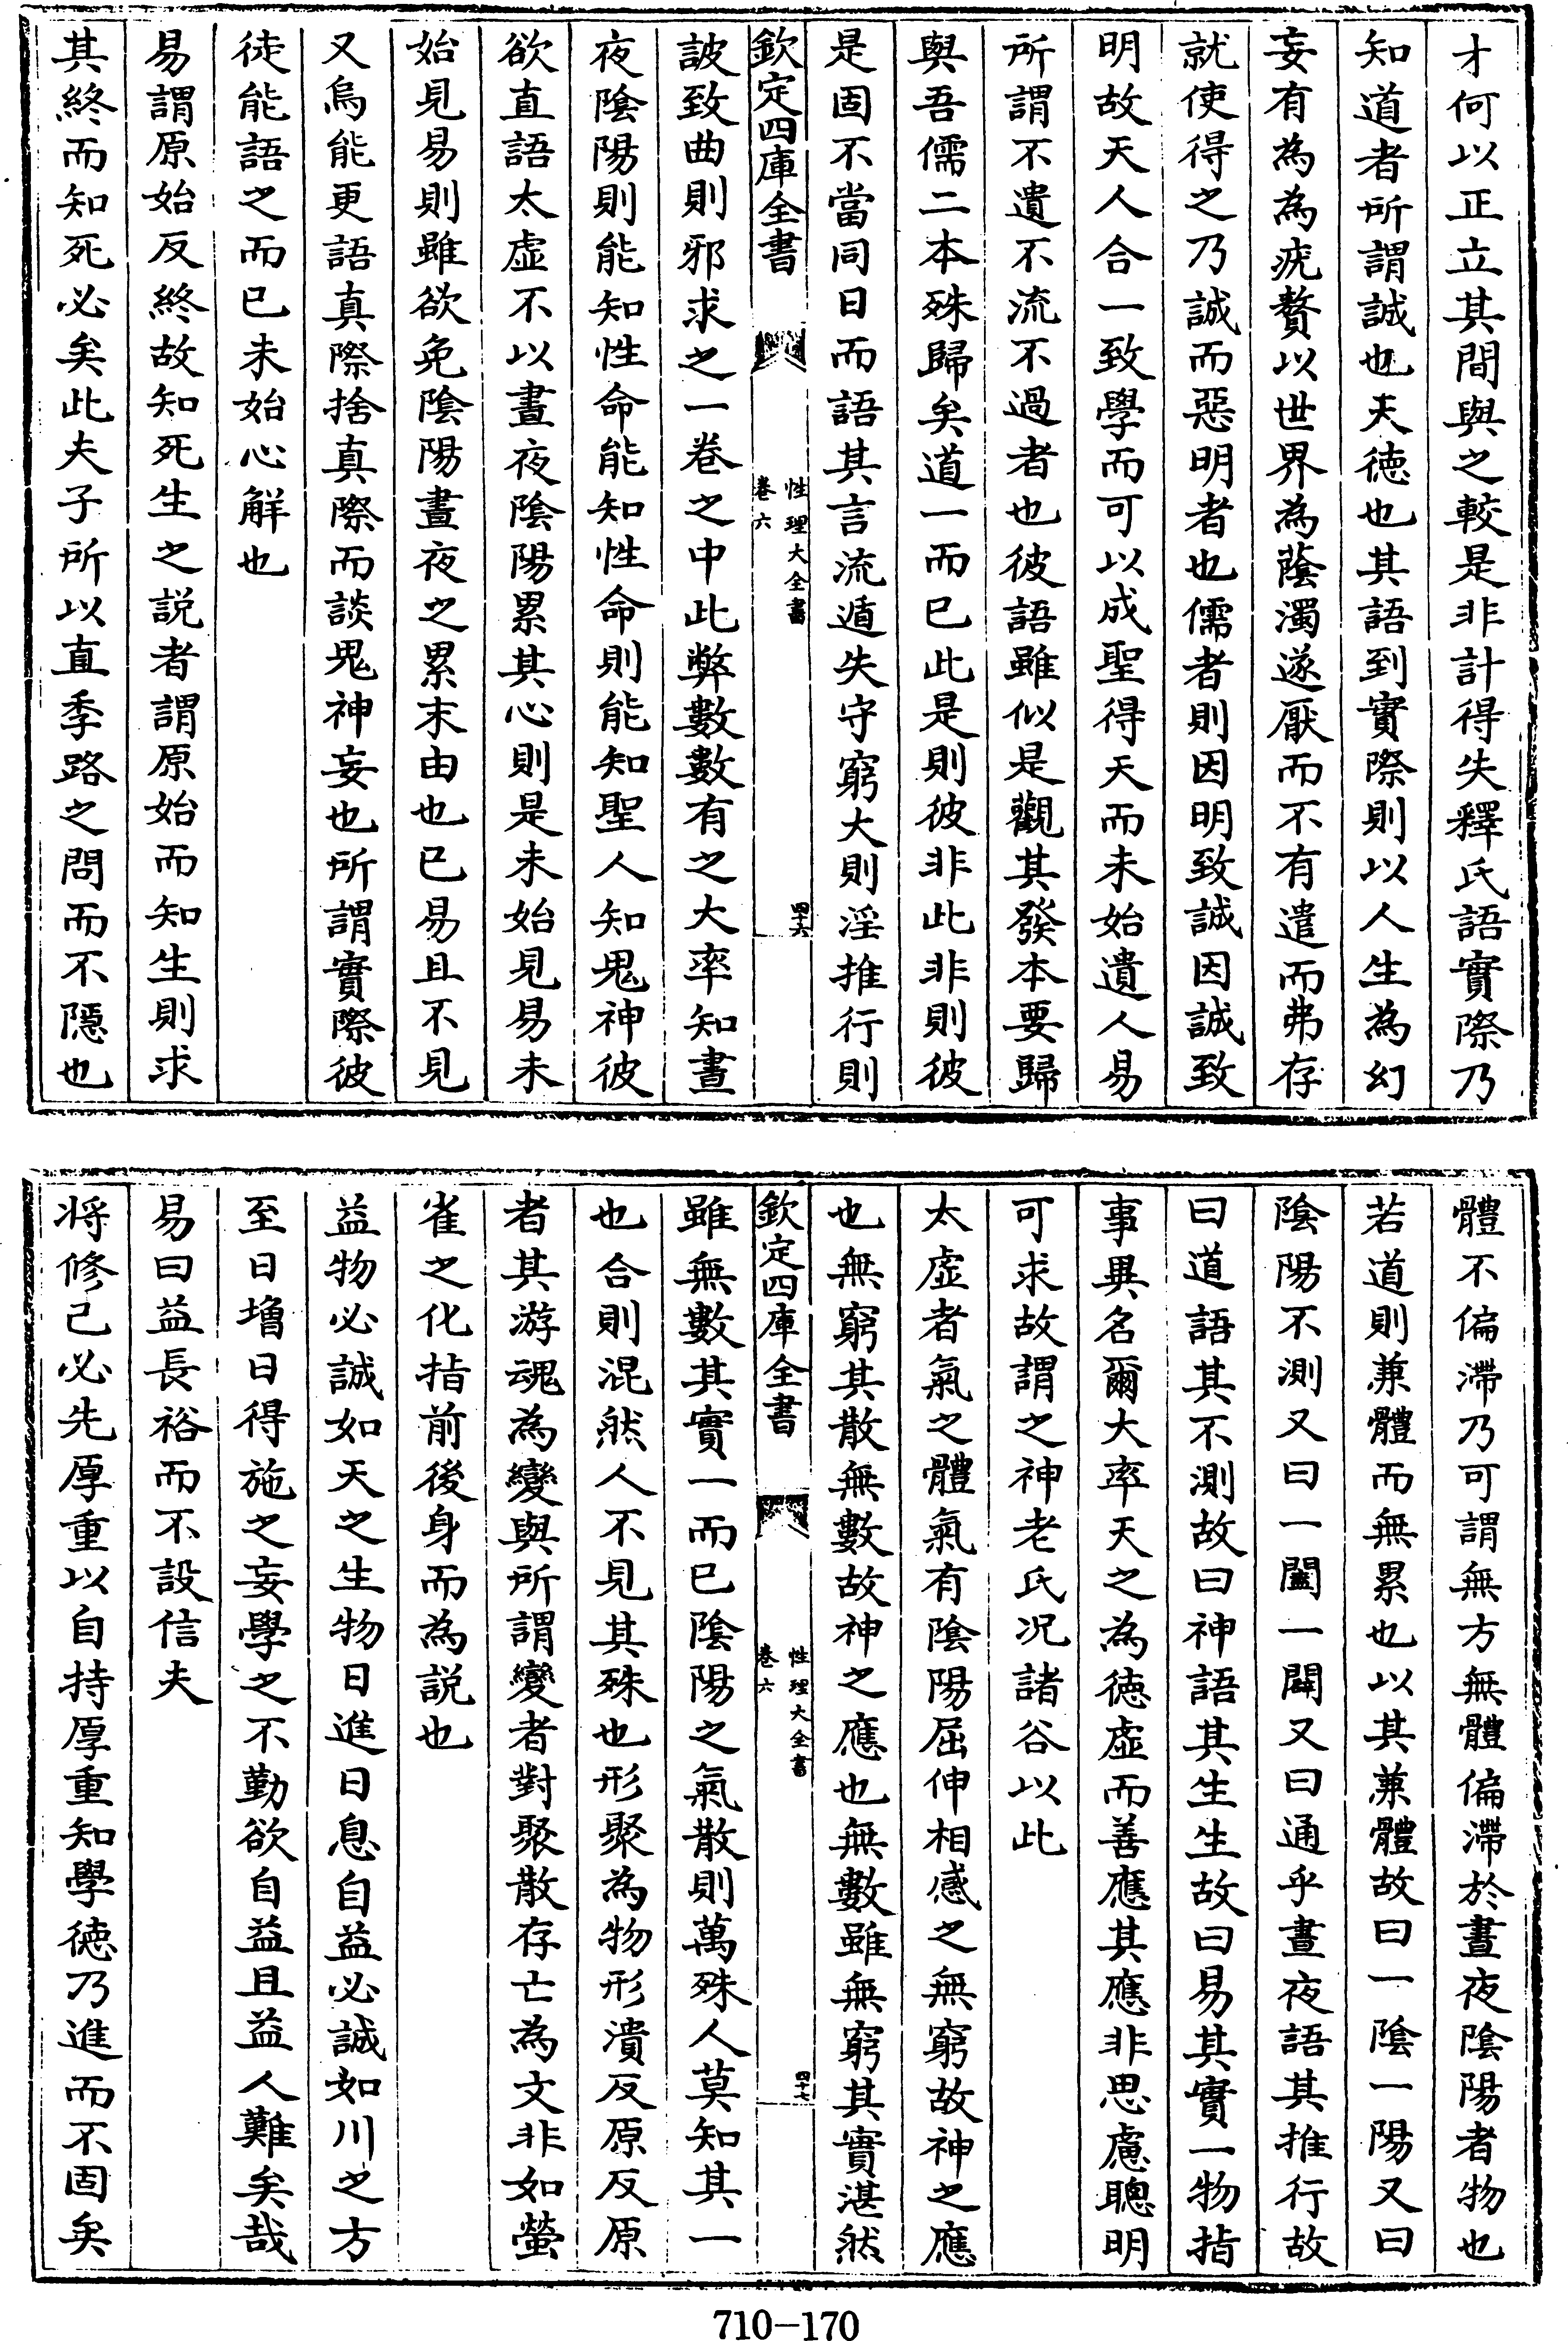 才何以正立其間與之較是非計得失釋氏語實際乃
知道者所謂誠也天徳也其語到實際則以人生為幻
妄有為為疣贅以世界為蔭濁遂厭而不有遣而弗存
就使得之乃誠而惡明者也儒者則因明致誠因誠致
明故天人合一致學而可以成聖得天而未始遺人易
所謂不遺不流不過者也彼語雖似是觀其發本要歸
與吾儒二本殊歸矣道一而已此是則彼非此非則彼
是固不當同日而語其言流遁失守窮大則淫推行則
欽定四庫全書
性理大全書
卷六
四十六
詖致曲則邪求之一卷之中此弊數數有之大率知晝
夜陰陽則能知性命能知性命則能知聖人知鬼神彼
欲直語太虛不以晝夜陰陽累其心則是未始見易未
始見易則雖欲免陰陽晝夜之累末由也已易且不見
又烏能更語真際捨真際而談鬼神妄也所謂實際彼
徒能語之而已未始心解也
易謂原始反終故知死生之説者謂原始而知生則求
其終而知死必矣此夫子所以直季路之問而不隱也
體不偏滯乃可謂無方無體偏滯於晝夜陰陽者物也
若道則兼體而無累也以其兼體故曰一陰一陽又曰
陰陽不測又曰一闔一闢又曰通乎晝夜語其推行故
曰道語其不測故曰神語其生生故曰易其實一物指
事異名爾大率天之為徳虛而善應其應非思慮聰明
可求故謂之神老氏况諸谷以此
太虛者氣之體氣有陰陽屈伸相感之無窮故神之應
也無窮其散無數故神之應也無數雖無窮其實湛然
欽定四庫全書
性理大全書
卷六
四十七
雖無數其實一而已陰陽之氣散則萬殊人莫知其一
也合則混然人不見其殊也形聚為物形潰反原反原
者其游魂為變與所謂變者對聚散存亡為文非如螢
雀之化指前後身而為説也
益物必誠如天之生物日進日息自益必誠如川之方
至日增日得施之妄學之不勤欲自益且益人難矣哉
易曰益長裕而不設信夫
将修己必先厚重以自持厚重知學徳乃進而不固矣
710-170